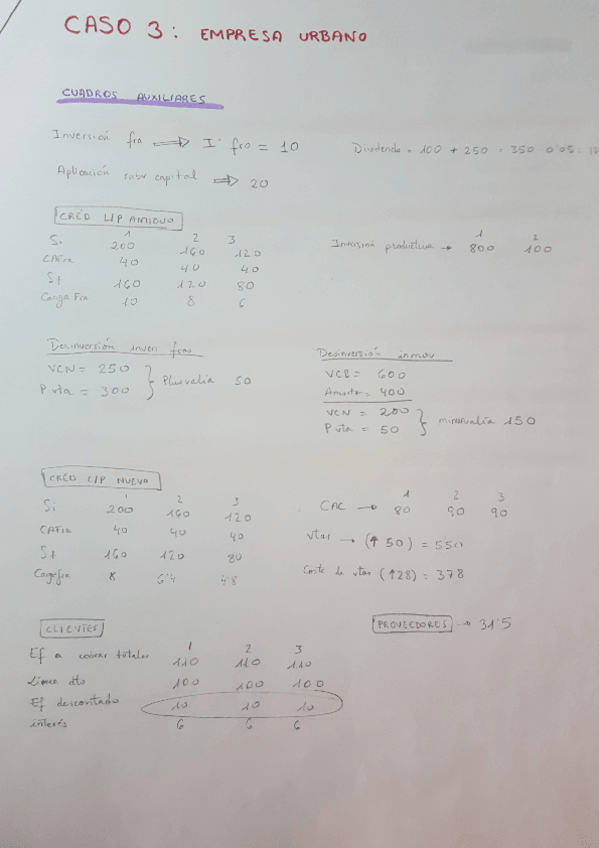 CASO 3: EMPRESA URBANO
CUADROS AUXILIARES
Inversión fra ⟹ I' fra = 10
Dividendo = 100 + 250 = 350 · 0'05 =
Aplicación sobre capital ⟹ 20
CRÉD L/P ANTIGUO
1 2 3
Si 200 160 120
CAFra 40 40 40
Sf 160 120 80
Carga Fra 10 8 6
1 2
Inversión productiva → 800 100
Desinversión inver fras
VCN = 250
P vta = 300
Plusvalía 50
Desinversión inmov
VCB = 600
Amorta = 400
VCN = 200
P vta = 50
minusvalía 150
CRÉD L/P NUEVO
1 2 3
Si 200 160 120
CAFra 40 40 40
Sf 160 120 80
Cargafra 8 6'4 4'8
1 2 3
CAC → 80 90 90
Vtas → (↑ 50) = 550
Coste de vtas (↑28) = 378
CLIENTES
1 2 3
Ef a cobrar totales 110 110 110
Línea dto 100 100 100
Ef descontado 10 10 10
interés 6 6 6
PROVEEDORES → 31'5